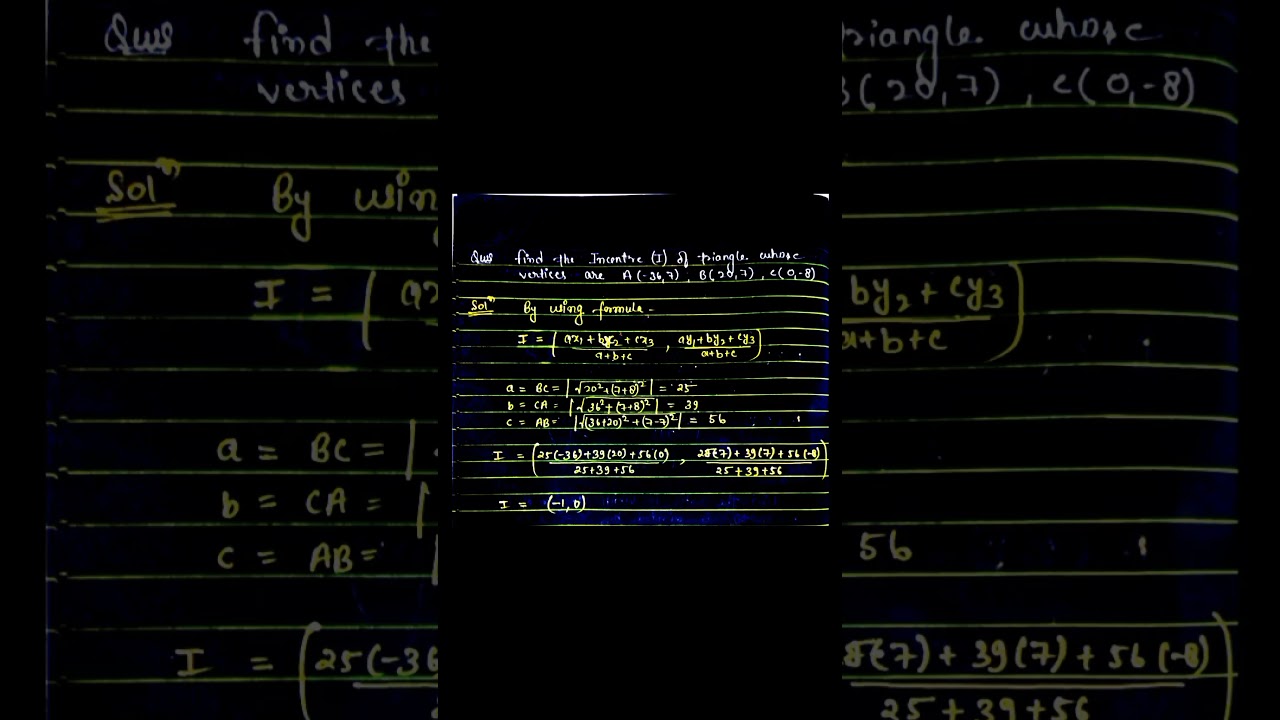 Ques find the Incentre (I) of triangle whose
vertices are A(-36,7), B(20,7), C(0,-8)
Solⁿ By using formula-
I = ( ax₁ + bx₂ + cx₃ / a+b+c , ay₁ + by₂ + cy₃ / a+b+c )
a = BC = |√20²+(7+8)²| = 25
b = CA = |√36²+(7+8)²| = 39
c = AB = |√(36+20)²+(7-7)²| = 56
I = ( 25(-36)+39(20)+56(0) / 25+39+56 , 25(7)+39(7)+56(-8) / 25+39+56 )
I = (-1,0)